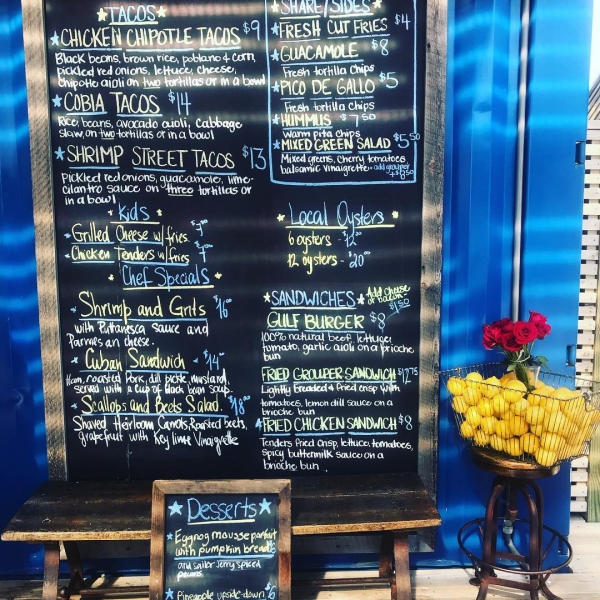 TACOS
CHICKEN CHIPOTLE TACOS $9
Black beans, brown rice, poblano & corn,
pickled red onions, lettuce, cheese,
chipotle aioli on two tortillas or in a bowl
COBIA TACOS $14
Rice, beans, avocado aioli, cabbage
slaw, on two tortillas or in a bowl
SHRIMP STREET TACOS $13
Pickled red onions, guacamole, lime-
cilantro sauce on three tortillas or
in a bowl
Kids
Grilled Cheese w/ fries $7
Chicken Tenders w/ fries $7
Chef Specials
Shrimp and Grits $16
with Puttanesca sauce and
Parmesan cheese.
Cuban Sandwich $14
Ham, roasted Pork, dill pickle, mustard
served with a cup of black bean soup.
Scallops and Beets Salad. $18
Shaved Heirloom Carrots, Roasted beets,
grapefruit with Key lime Vinaigrette
SHARE/SIDES
FRESH CUT FRIES $4
GUACAMOLE $8
Fresh tortilla chips
PICO DE GALLO $5
Fresh tortilla chips
HUMMUS $7 50
Warm pita chips
MIXED GREEN SALAD $5 50
Mixed greens, cherry tomatoes
balsamic vinaigrette - add grouper
Local Oysters
6 oysters - $12
12 oysters - $20
SANDWICHES Add cheese
or bacon -
$1.50
GULF BURGER $8
100% natural beef, lettuce,
tomato, garlic aioli on a brioche
bun
FRIED GROUPER SANDWICH $12.75
Lightly Breaded & Fried crisp with
tomatoes, lemon dill sauce on a
brioche bun
FRIED CHICKEN SANDWICH $8
Tenders fried crisp, lettuce, tomatoes,
spicy buttermilk sauce on a
brioche bun
Desserts
Eggnog mousse parfait
with pumpkin bread
and sailor Jerry spiced
pecans
Pineapple upside-down $6